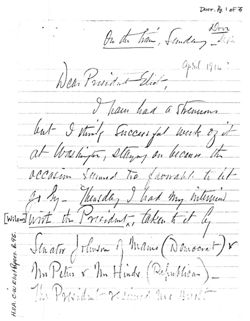 Dorr. Pg 1 of 5
Dorr
On the train, Sunday
April 1914
Dear President Eliot,
I have had a strenuous
but I think successful week of it
at Washington, staying on because the
occasion seemed too favorable to let
go by — Thursday I had my interview
[Wilson] with the President, taken to it by
Senator Johnson of Maine (Democrat) &
Mr Peters & Mr Hinds (Republican) —
The President received me most